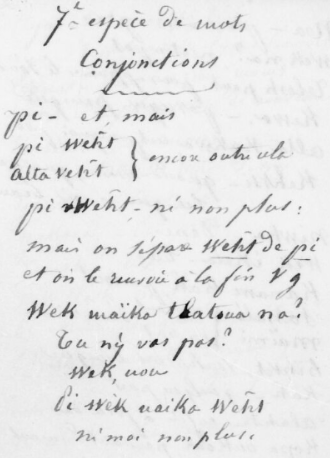 7e espèce de mots
Conjonctions
pi - et, mais
pi Weht } encore outre cela
alta veht
pi Weht - ni non plus:
mais on sépare Weht de pi
et on le renvoie à la fin Vg
Wek maïka tlatoua na?
Tu n'y vas pas?
Wek, non
Pi Wek naika Weht
ni moi non plus.